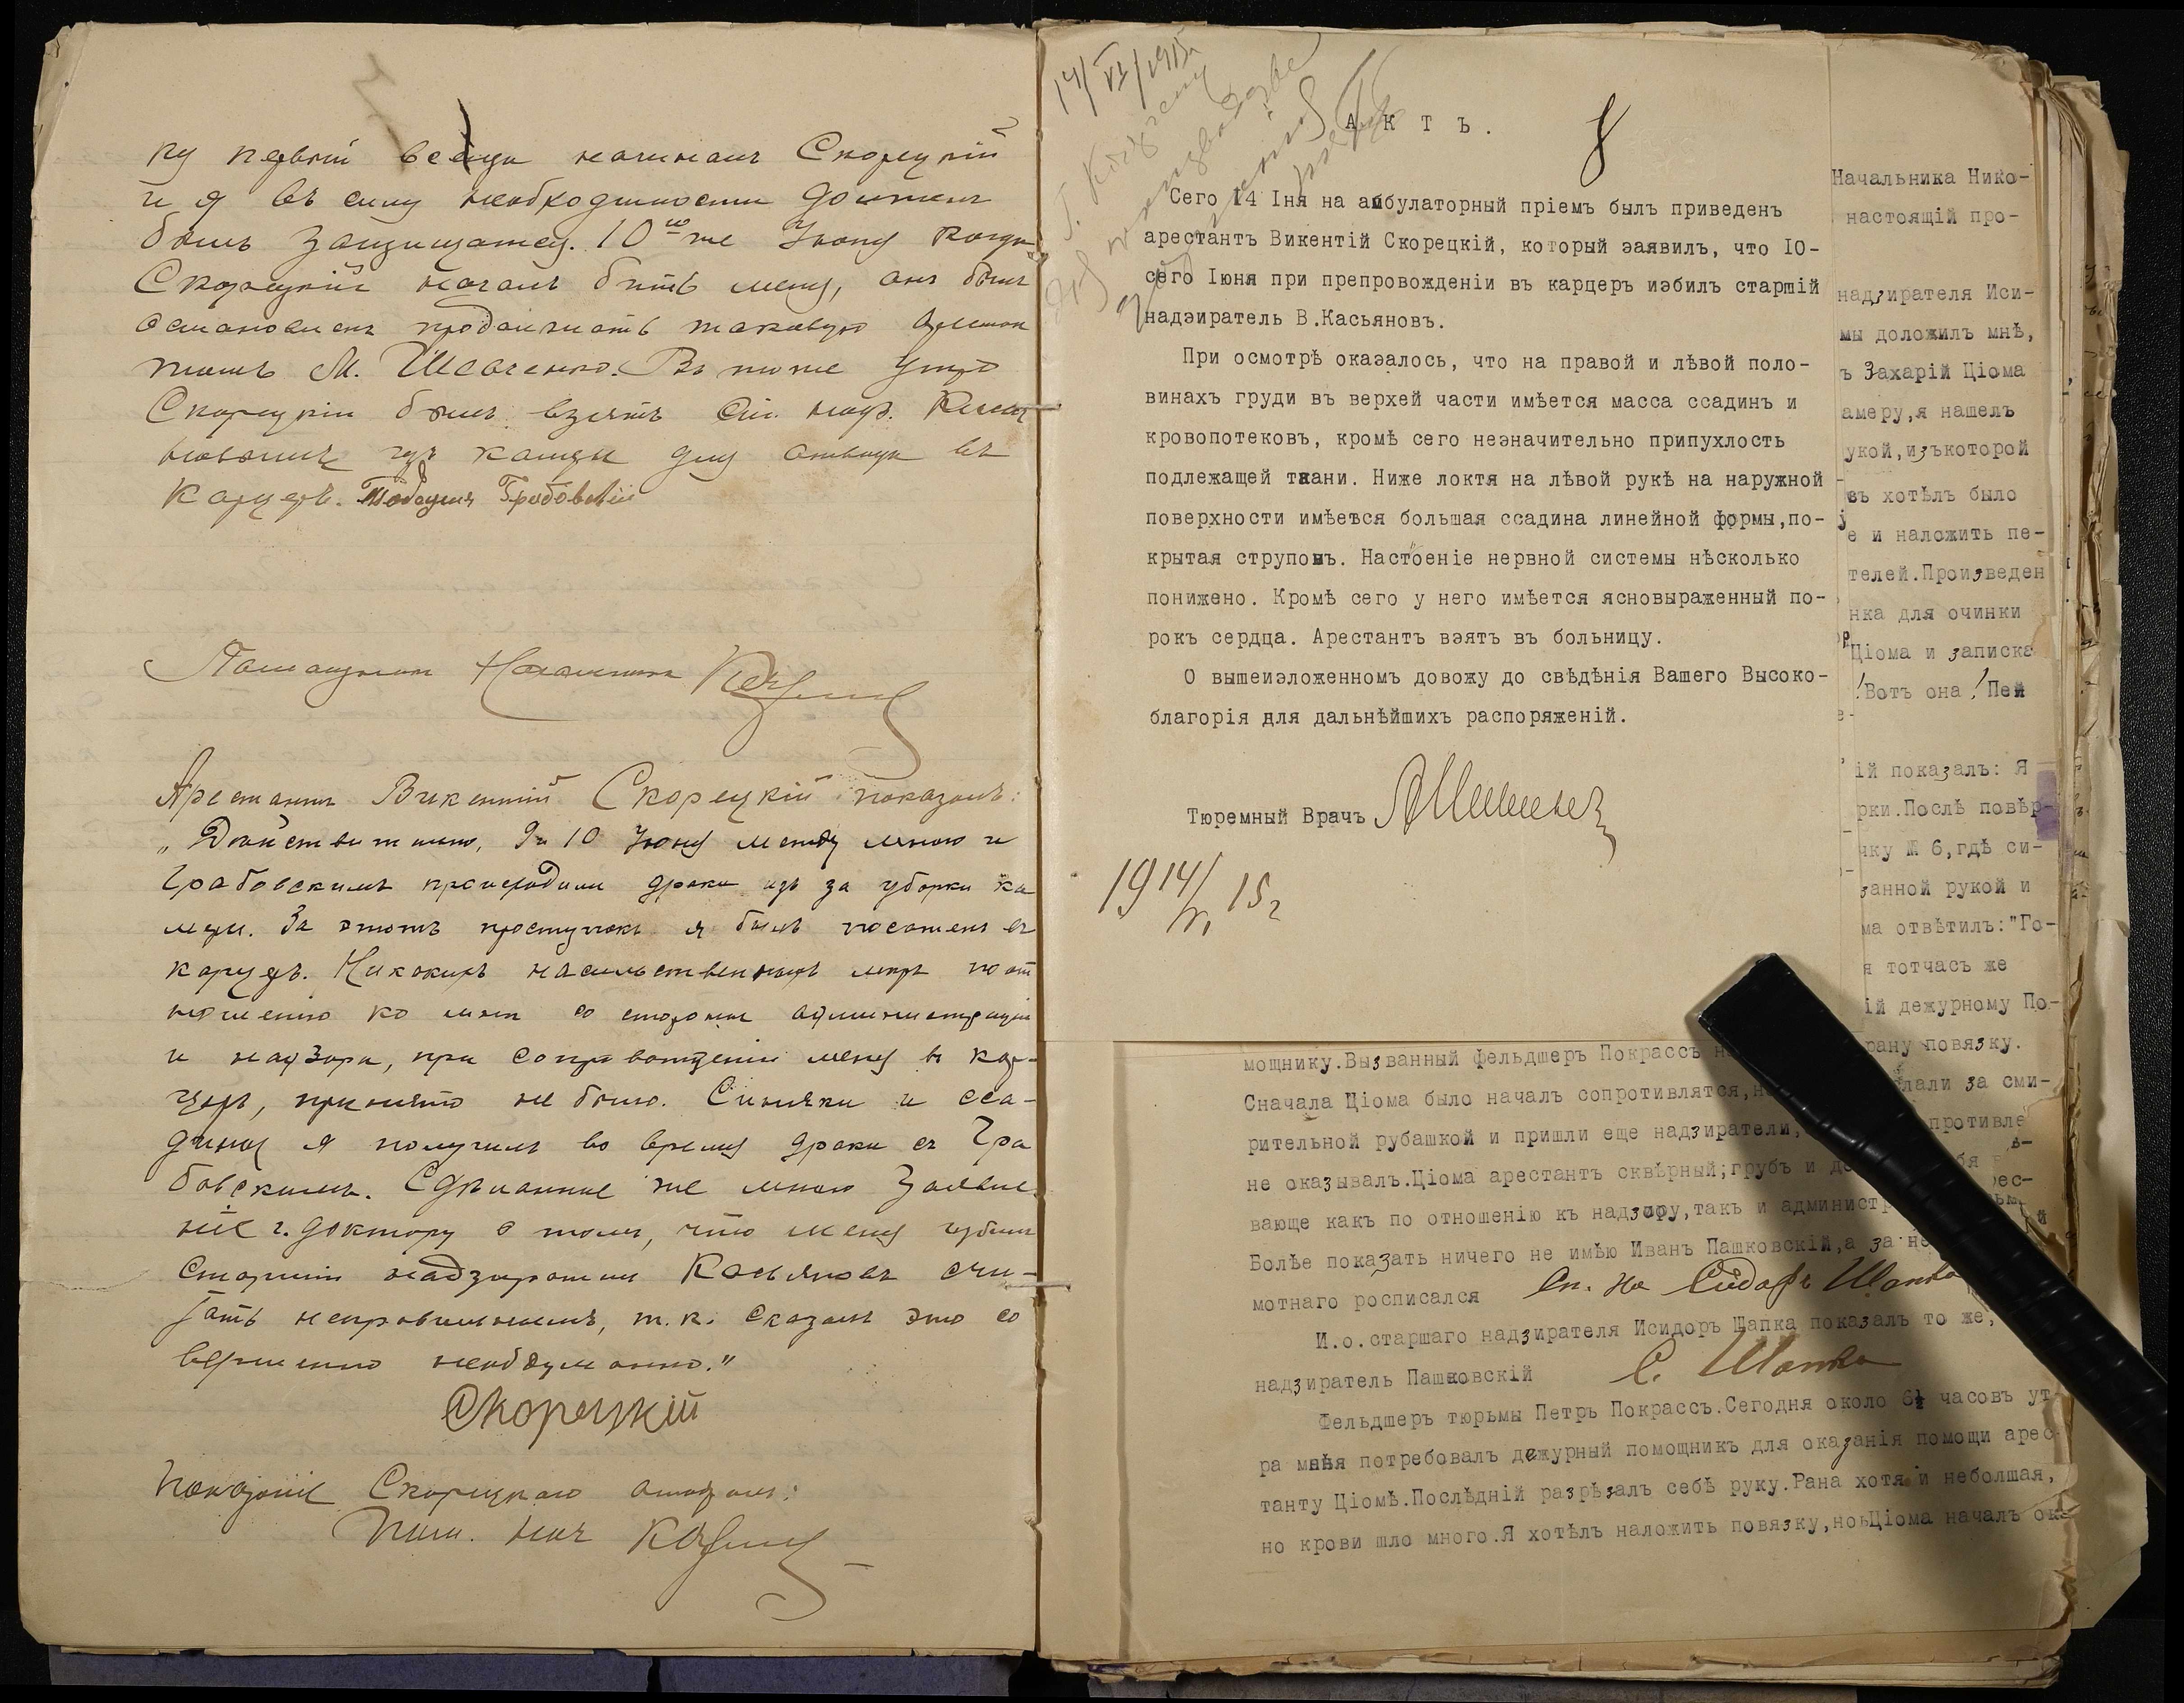 ку первый всегда начиналъ Скорецкій
и я въ силу необходимости долженъ
былъ защищаться. 10го же Іюня когда
Скорецкій началъ бить меня, онъ былъ
остановленъ продолжать таковую арестан
томъ М. Шевченко. Въ тоже утро
Скорецкій былъ взятъ ст. надз. Касья
новымъ изъ камеры для отвода въ
карцеръ. Грабовскій
Помощникъ Начальника
Арестантъ Викентій Скорецкій показалъ:
„Дѣйствительно, 10 Іюня между мною и
Грабовскимъ происходили драки изъ за уборки ка
меры. За этотъ проступокъ я былъ посаженъ въ
карцеръ. Никакихъ насильственныхъ мѣръ по от
ношенію ко мнѣ со стороны администраціи
и надзора, при сопровожденіи меня въ кар-
церъ, принято не было. Синяки и сса-
дины я получилъ во время драки съ Гра
бовскимъ. Сдѣланное же мною заявле
ніе г. доктору о томъ, что меня избилъ
старшій надзиратель Касьяновъ счи-
тать неправильнымъ, т.к. сказалъ это со
вершенно необдуманно."
Скорецкій
Показаніе Скорецкаго отобралъ:
Пом. Нач
14/VI/1915г
8
А К Т Ъ .
Сего 14 Іня на амбулаторный пріемъ былъ приведенъ
арестантъ Викентій Скорецкій, который заявилъ, что 10-
сего Іюня при препровожденіи въ карцеръ избилъ старшій
надзиратель В.Касьяновъ.
При осмотрѣ оказалось, что на правой и лѣвой поло-
винахъ груди въ верхей части имѣется масса ссадинъ и
кровопотековъ, кромѣ сего незначительно припухлость
подлежащей ткани. Ниже локтя на лѣвой рукѣ на наружной
поверхности имѣется большая ссадина линейной формы,по-
крытая струпомъ. Настоеніе нервной системы нѣсколько
понижено. Кромѣ сего у него имѣется ясновыраженный по-
рокъ сердца. Арестантъ взятъ въ больницу.
О вышеизложенномъ довожу до свѣдѣнія Вашего Высоко-
благорія для дальнѣйшихъ распоряженій.
Тюремный Врачъ
1914/VI 15г
Начальника Нико-
настоящій про-
надзирателя Иси-
мы доложилъ мнѣ,
ъ Захарій Ціома
амеру,я нашелъ
укой,изъкоторой
съ хотѣлъ было
е и наложить пе-
телей.Произведен
нка для очинки
Ціома и записка
!Вотъ она ! Пей
ій показалъ: Я
рки.Послѣ повѣр-
чку № 6,гдѣ си-
занной рукой и
ма отвѣтилъ:"Го-
я тотчасъ же
ій дежурному По-
мощнику.Вызванный фельдшеръ Покрассъ рану повязку.
Сначала Ціома было началъ сопротивлятся, за сми-
рительной рубашкой и пришли еще надзиратели, противле
не оказывалъ.Ціома арестантъ сквѣрный;грубъ и
вающе какъ по отношенію къ надзору,такъ и
Болѣе показать ничего не имѣю Иванъ Пашковскій,а за
мотнаго росписался Сидоръ Шапка
И.о.старшаго надзирателя Исидоръ Шапка показалъ то же,
надзиратель Пашковскій С. Шапка
Фельдшеръ тюрьмы Петръ Покрассъ.Сегодня около 6½ часовъ ут
ра меня потребовалъ дежурный помощникъ для оказанія помощи арес-
танту Ціомѣ.Послѣдній разрѣзалъ себѣ руку.Рана хотя и неболшая,
но крови шло много.Я хотѣлъ наложить повязку,ноьЦіома началъ ок-